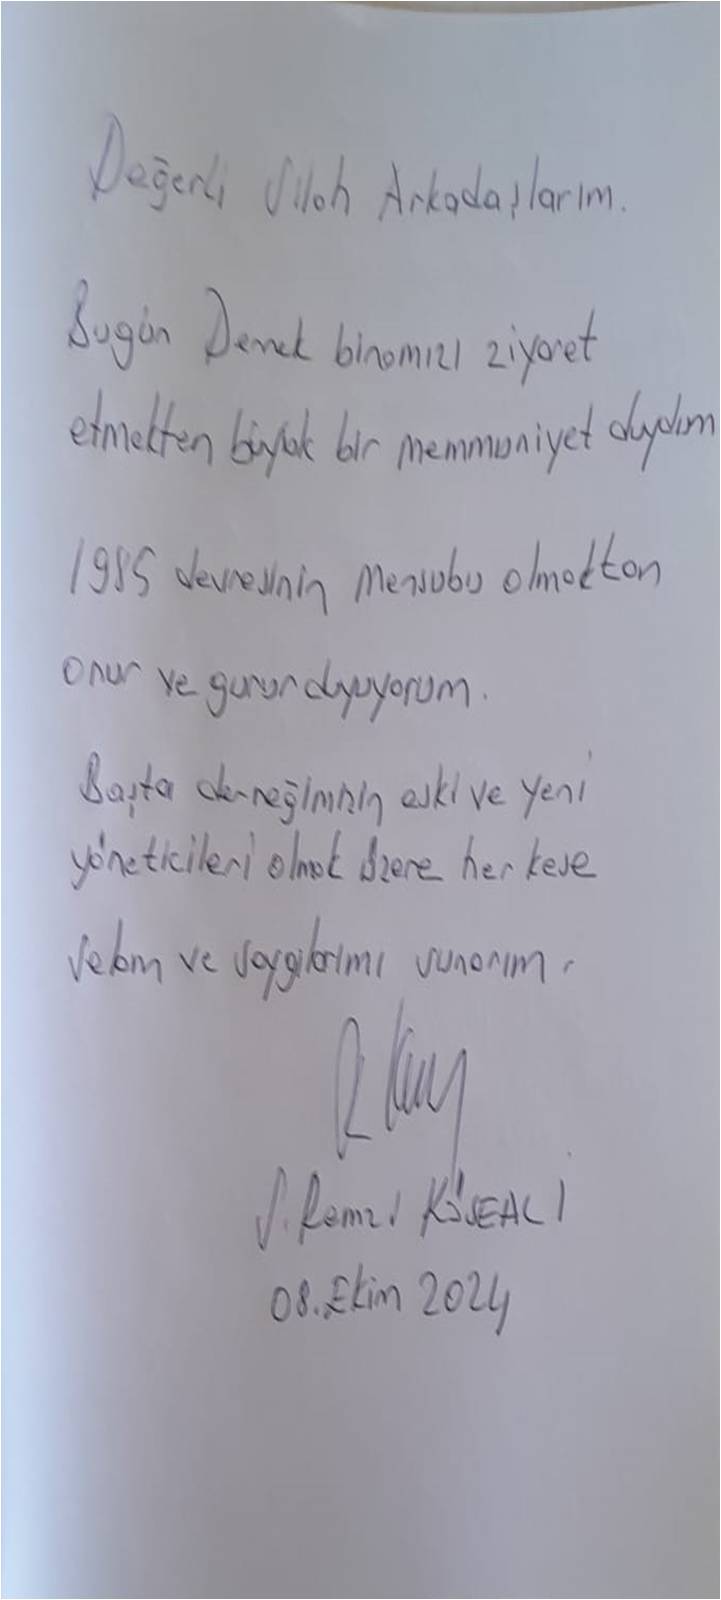 Değerli Silah Arkadaşlarım.
Bugün Dernek binamızı ziyaret
etmekten büyük bir memmuniyet duydum
1985 devresinin mensubu olmaktan
onur ve gurur duyuyorum.
Başta derneğimizin eski ve yeni
yöneticileri olmak üzere herkese
selam ve saygılarımı sunarım.
S. Remzi KÖSEALİ
08.Ekim 2024